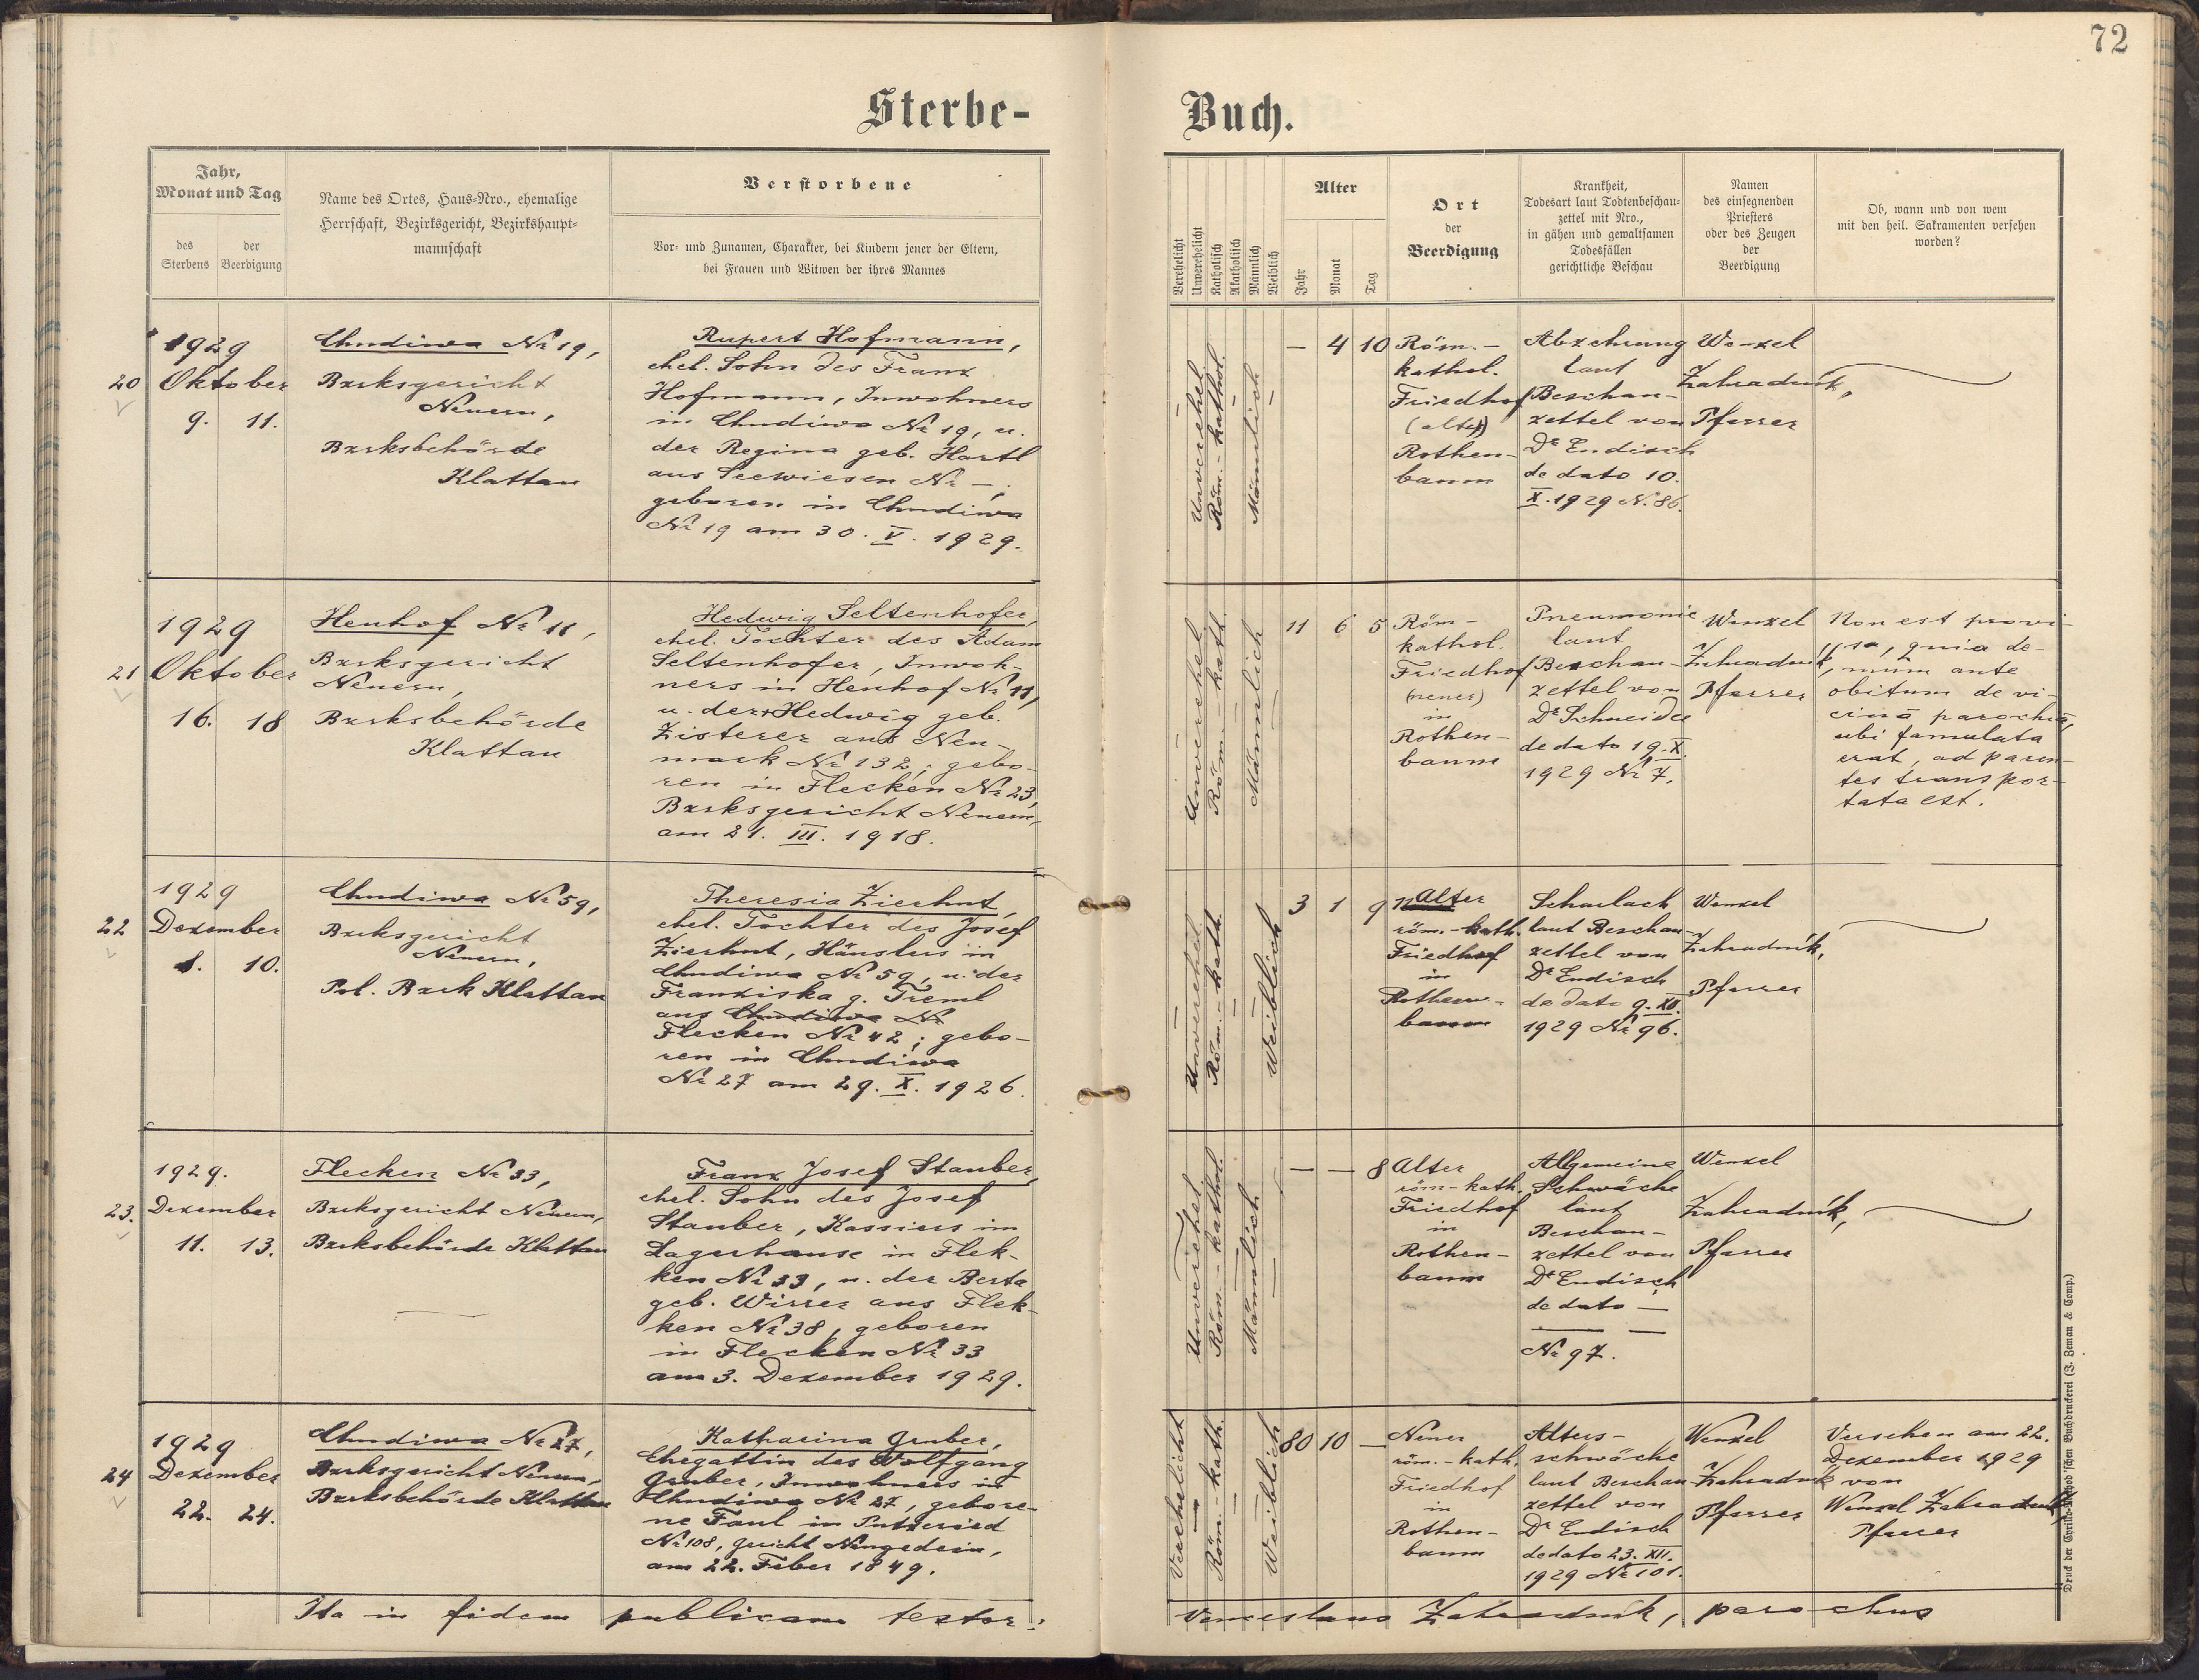 72
Sterbe-
Buch.
Jahr,
Monat und Tag
des
Sterbens
der
Beerdigung
Name des Ortes, Haus-Nro., ehemalige
Herrschaft, Bezirksgericht, Bezirkshaupt-
mannschaft
Verstorbene
Vor- und Zunamen, Charakter, bei Kindern jener der Eltern,
bei Frauen und Witwen der ihres Mannes
Verehelicht
Unverehelicht
Katholisch
Akatholisch
Männlich
Weiblich
Alter
Jahr
Monat
Tag
Ort
der
Beerdigung
Krankheit,
Todesart laut Todtenbeschau-
zettel mit Nro.,
in gähen und gewaltsamen
Todesfällen
gerichtliche Beschau
Namen
des einsegnenden
Priesters
oder des Zeugen
der
Beerdigung
Ob, wann und von wem
mit den heil. Sakramenten versehen
worden?
20
1929
Oktober
9. 11.
Chudiwa Nr 19,
Bzrksgericht
Neuern,
Bzrksbehörde
Klattau
Rupert Hofmann,
ehel. Sohn des Franz
Hofmann, Inwohners
in Chudiwa Nr 19, u.
der Regina geb. Hartl
aus Seewiesen Nr —,
geboren in Chudiwa
Nr 19 am 30. V. 1929.
Unverehel.
Röm.-kathol.
Männlich
— 4 10
Röm.-
kathol.
Friedhof
(alter)
Rothen-
baum
Abzehrung
laut
Beschau-
zettel von
Dr Endisch
de dato 10.
X. 1929 N. 86.
Wenzel
Zahradník,
Pfarrer
21
1929
Oktober
16. 18
Heuhof Nr 11,
Bzrksgericht
Neuern,
Bzrksbehörde
Klattau
Hedwig Seltenhofer,
ehel. Tochter des Adam
Seltenhofer, Inwoh-
ners in Heuhof Nr 11,
u. der Hedwig geb.
Zisterer aus Neu-
mark Nr 132, gebo-
ren in Flecken Nr 23,
Bzrksgericht Neuern,
am 21. III. 1918.
Unverehel.
Röm.-kath.
Männlich
11 6 5
Röm-
kathol.
Friedhof
(neuer)
in
Rothen-
baum
Pneumonie
laut
Beschau-
zettel von
Dr Schneider
de dato 19. X.
1929 Nr 7.
Wenzel
Zahradník,
Pfarrer
Non est provi-
sa, quia de-
mum ante
obitum de vi-
cina parochia,
ubi famulata
erat, ad paren-
tes transpor-
tata est.
22
1929
Dezember
8. 10.
Chudiwa Nr 59,
Bzrksgericht
Neuern,
Pol. Bzrk Klattau
Theresia Zierhut,
ehel. Tochter des Josef
Zierhut, Häuslers in
Chudiwa Nr 59, u. der
Franziska g. Treml
aus Chudiwa Nr
Flecken Nr 42; gebo-
ren in Chudiwa
Nr 27 am 29. X. 1926.
Unverehel.
Röm.-kath.
Weiblich
3 1 9
Alter
röm.-kath.
Friedhof
in
Rothen-
baum
Scharlach
laut Beschau-
zettel von
Dr Endisch
de dato 9. XII.
1929 Nr 96.
Wenzel
Zahradník,
Pfarrer
23.
1929.
Dezember
11. 13.
Flecken Nr 33,
Bzrksgericht Neuern,
Bzrksbehörde Klattau
Franz Josef Stauber,
ehel. Sohn des Josef
Stauber, Kassiers im
Lagerhause in Flek-
ken Nr 33, u. der Berta
geb. Wirrer aus Flek-
ken Nr 38, geboren
in Flecken Nr 33
am 3. Dezember 1929.
Unverehel.
Röm.-kathol.
Männlich
— — 8
Alter
röm-kath.
Friedhof
in
Rothen-
baum
Allgemeine
Schwäche
laut
Beschau-
zettel von
Dr Endisch
de dato —
Nr 97.
Wenzel
Zahradník,
Pfarrer
24
1929
Dezember
22. 24.
Chudiwa Nr 27,
Bzrksgericht Neuern,
Bzrksbehörde Klattau
Katharina Gruber,
Ehegattin des Wolfgang
Gruber, Inwohners in
Chudiwa Nr 27, gebore-
ne Faul in Putzeried
Nr 108, Gericht Neugedein,
am 22. Feber 1849.
Verehelicht
Röm.-kath.
Weiblich
80 10 —
Neuer
röm.-kath.
Friedhof
in
Rothen-
baum
Alters-
schwäche
laut Beschau-
zettel von
Dr Endisch
de dato 23. XII.
1929 Nr 101.
Wenzel
Zahradník
Pfarrer
Versehen am 22.
Dezember 1929
von
Wenzel Zahradník,
Pfarrer
Ita in fidem publicam testor:
Venceslaus Zahradník, parochus
Druck der Cyrillo-Method'schen Buchdruckerei (J. Zeman & Comp.)